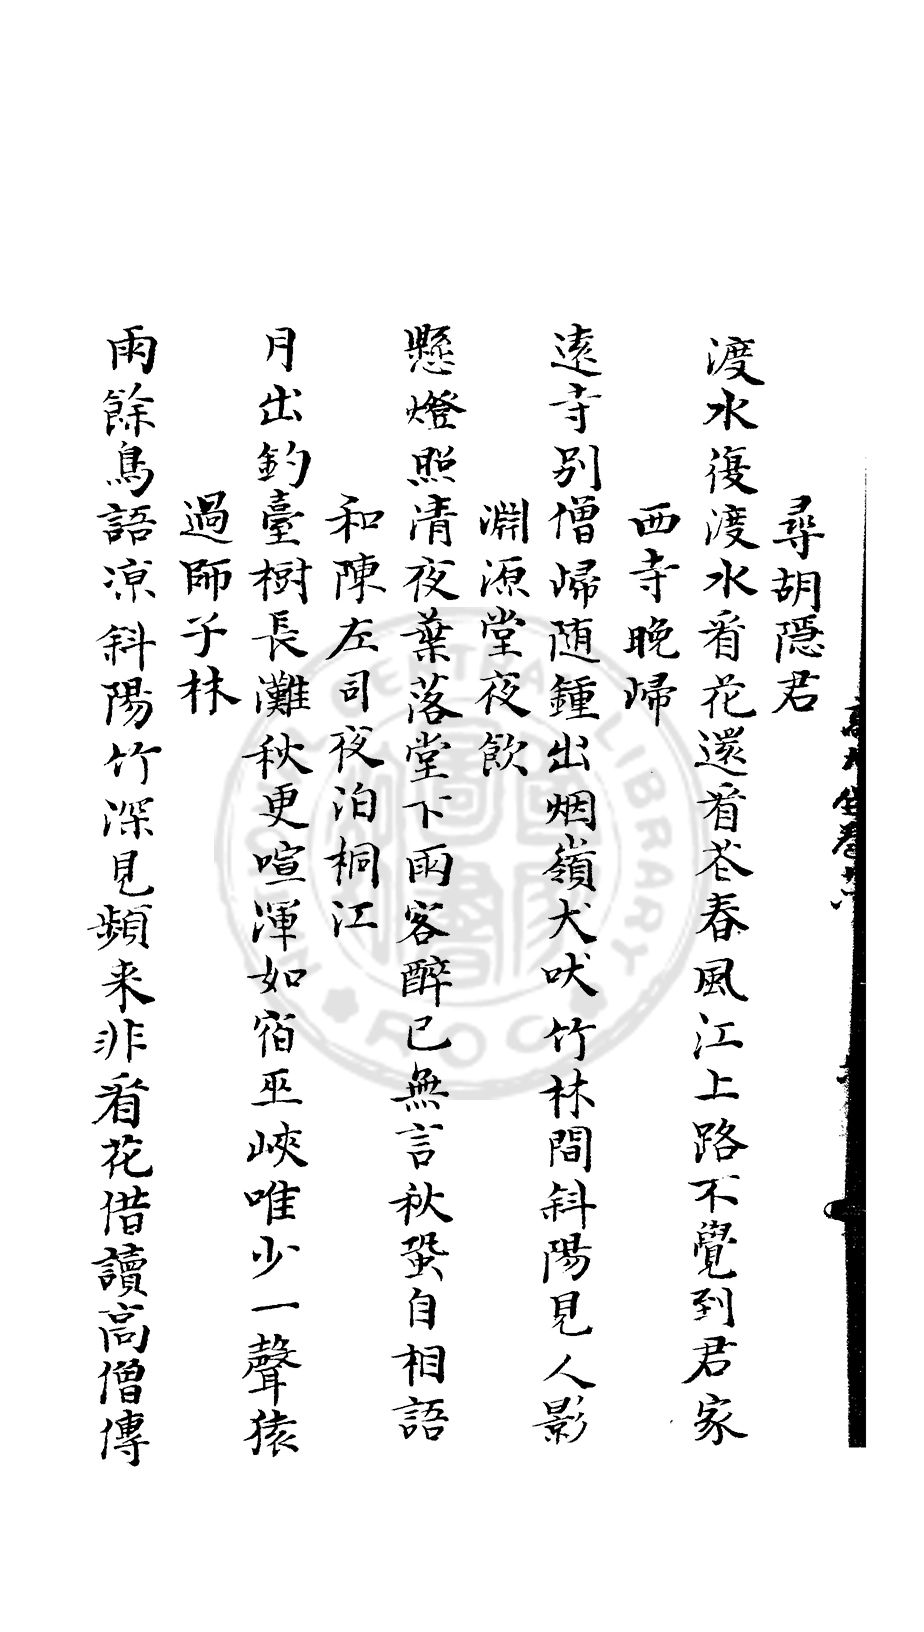 尋胡隱君
渡水復渡水看花還看花春風江上路不覺到君家
西寺晚歸
遠寺別僧歸随鍾出烟嶺犬吠竹林間斜陽見人影
淵源堂夜飲
懸燈照清夜葉落堂下雨客醉已無言秋蛩自相語
和陳左司夜泊桐江
月出釣臺樹長灘秋更喧渾如宿巫峽唯少一聲猿
過師子林
雨餘鳥語凉斜陽竹深見頻来非看花借讀高僧傳
NATIONAL CENTRAL LIBRARY
ROC